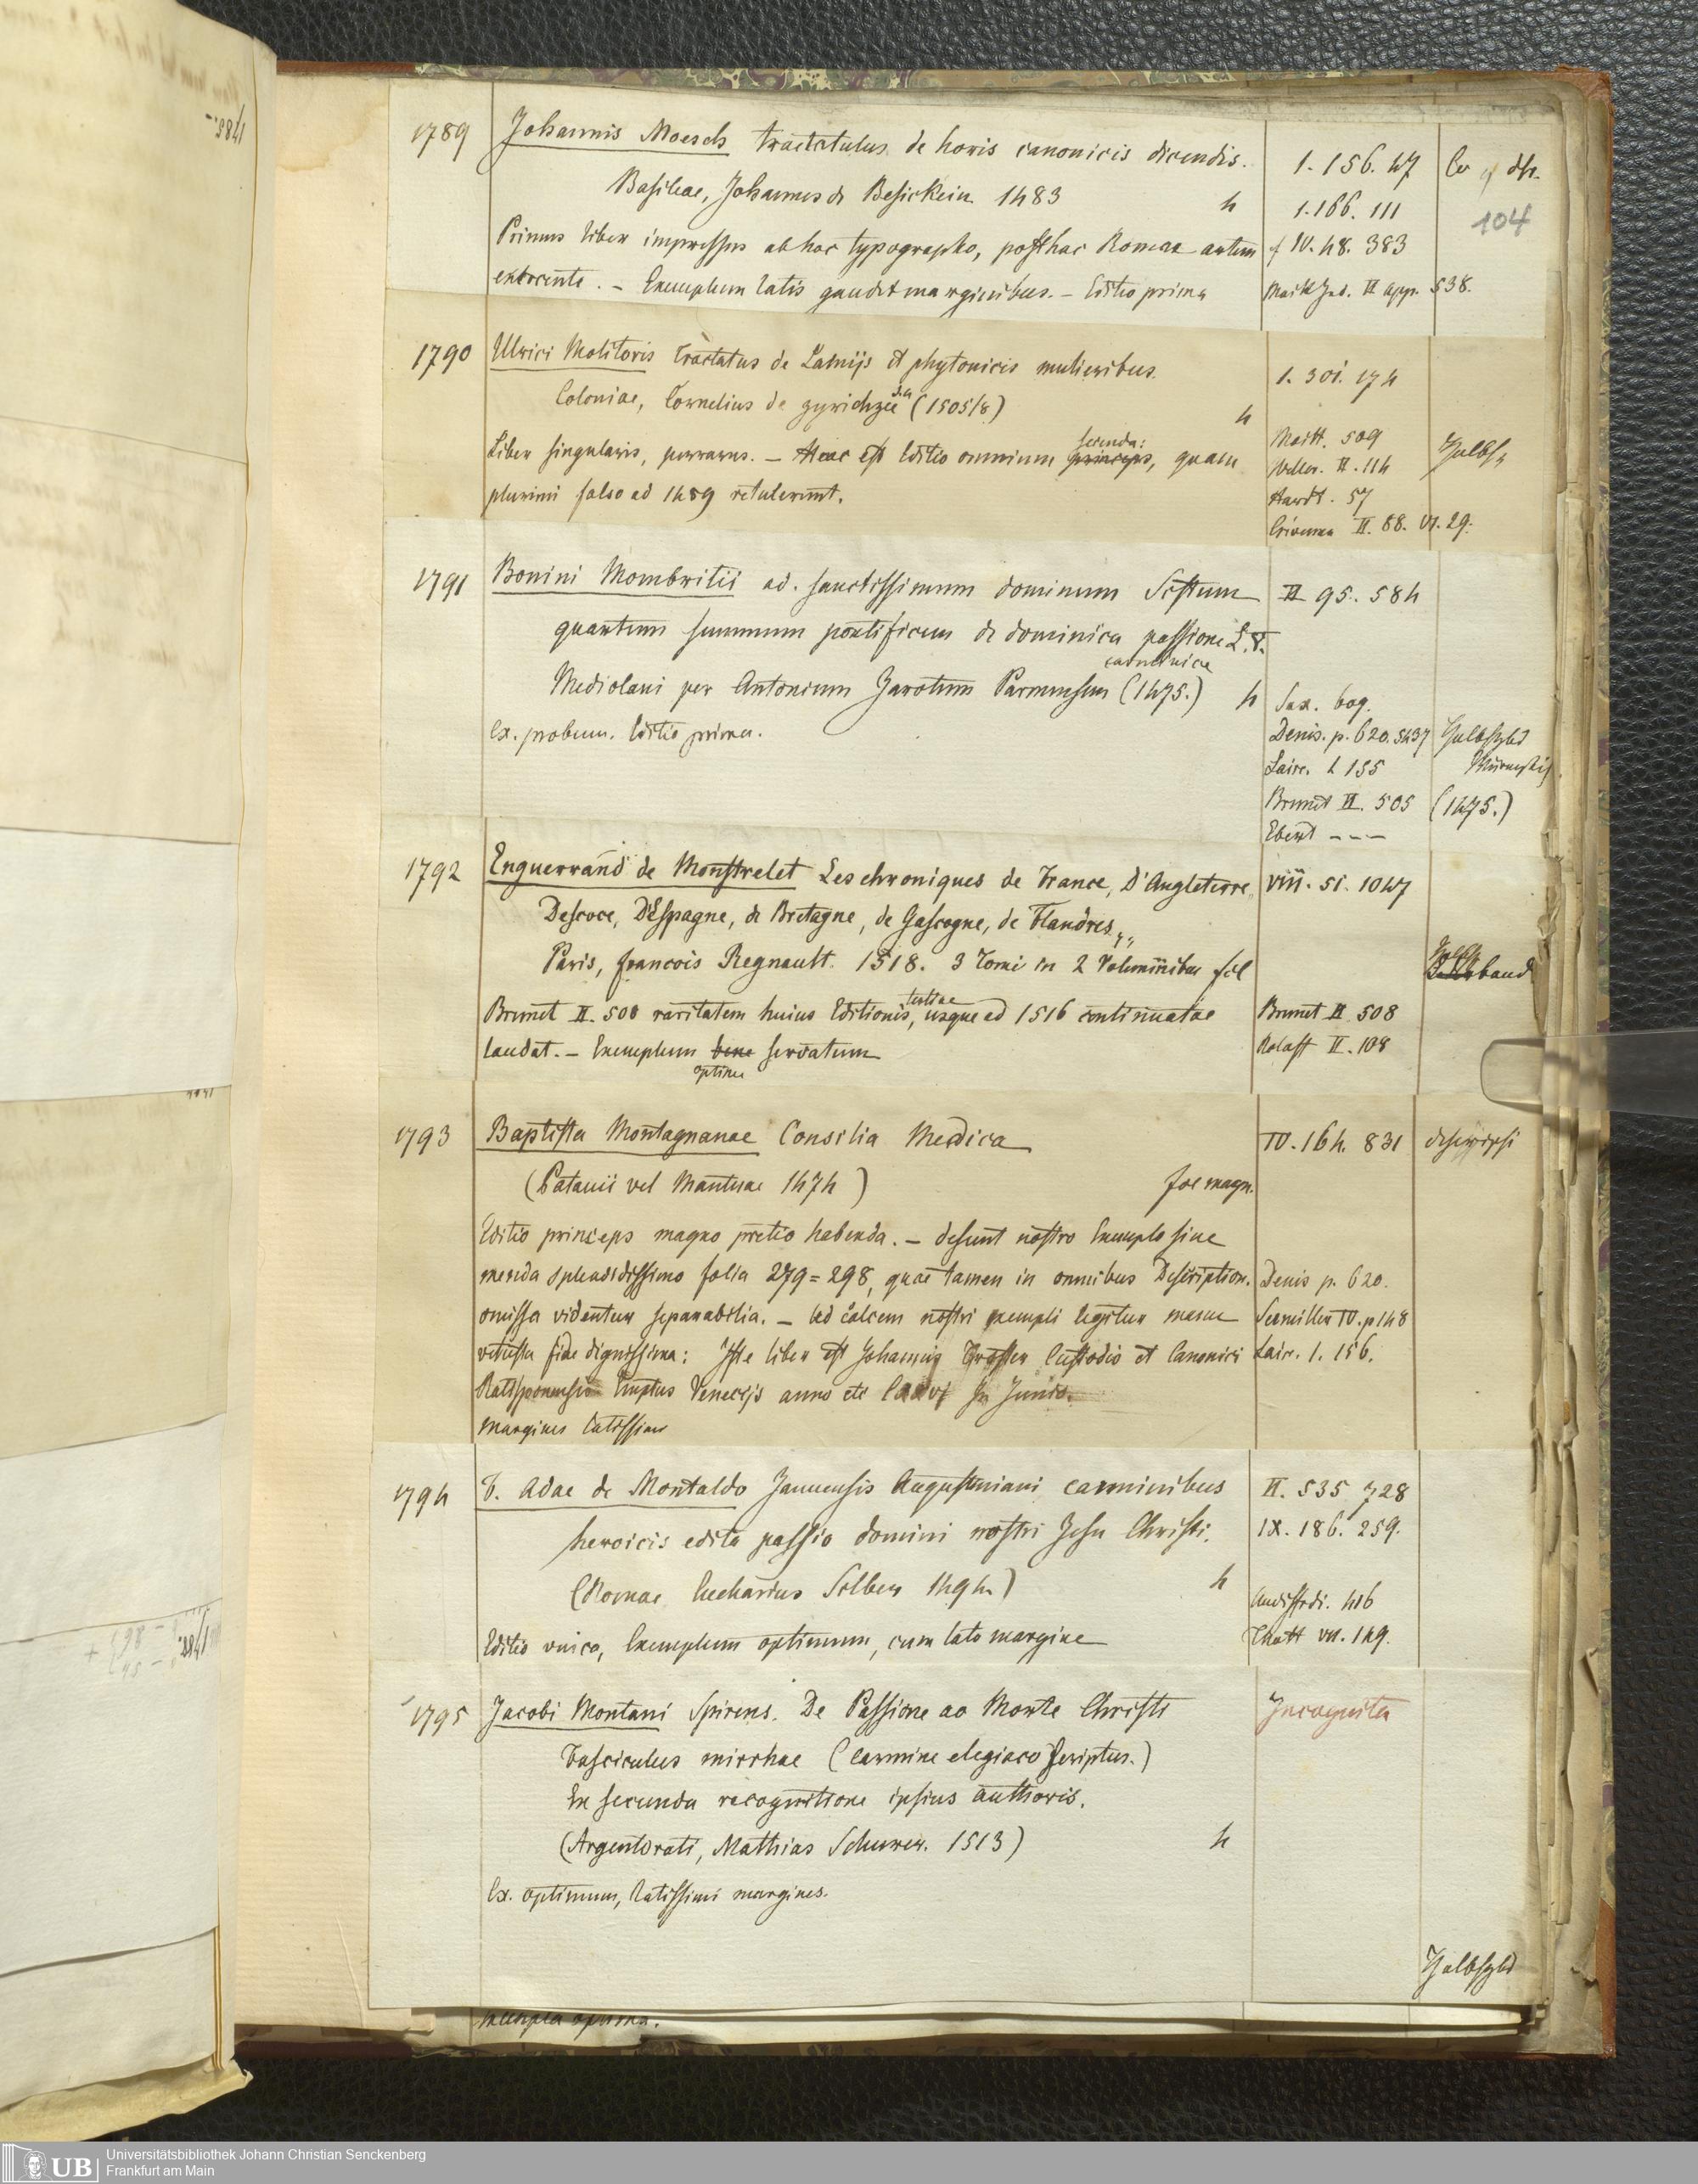 1789 Johannis Moesch tractatulus de horis canonicis dicendis. 1. 156. 47
Basileae, Johannes de Besickein 1483 4 1. 166. 111
104
Primus liber impressus ab hoc typographo, posthac Romae artem f IV. 48. 383
exercente. – Exemplum latis gaudet marginibus. – Editio prima II app. 538.
1790 Ulrici Molitoris Tractatus de Lamijs et phytonicis mulieribus. 1. 301. 174
Coloniae, Cornelius de zyrichzee (1505/8) 4
Liber singularis, perrarus. – Haec est Editio omnium princeps secunda:, quam Maitt. 509
plurimi falso ad 1489 retulerunt. Weller. II. 114
Hardt. 57
II. 88. VI. 29.
1791 Bonini Mombritii ad. sanctissimum dominum Sixtum II 95. 584
quartum summum pontificem de dominica passione L. V.
carminice
Mediolani per Antonium Zarotum Parmensem (1475.) 4 Sax. 609.
ex. probum. Editio prima. Denis. p. 620. 5437 Halbfzbd
Laire. 1 155
Brunet II. 505 (1475.)
Ebert - - -
1792 Enguerrand de Monstrelet Les chroniques de France, D'Angleterre, VIII. 51. 1047
Descoce, D'Espagne, de Bretagne, de Gascogne, de Flandres,,
Paris, francois Regnault. 1518. 3 Tomi in 2 Voluminibus fol
Brunet II. 508 raritatem huius Editionis tertiae, usque ad 1516 continuatae Brunet II 508
laudat. – Exemplum bene optime servatum II. 108
1793 Baptista Montagnanae Consilia Medica IV. 164. 831 descripsi
(Patauii vel Mantuae 1474) fol magn.
Editio princeps magno pretio habenda. – desunt nostro Exemplo sine
menda splendidissimo folia 279=298, quae tamen in omnibus Description. Denis p. 620.
omissa videntur separabilia. – Ad calcem nostri exempli legitur manu Seemiller IV. p 148
vetusta fide dignissima: Iste liber est Johannis Troster Custodis et Canonici Lair. 1. 156.
Ratisponensis Emptus Venecijs anno etc In Junio.
margines latissimi
1794 F. Adae de Montaldo Januensis Augustiniani carminibus II. 535 728
heroicis edita passio domini nostri Jesu Christi. IX. 186. 259.
(Romae Eucharius Silber 1494) 4 Audiffredi. 416
Editio unica, Exemplum optimum, cum lato margine VII. 149.
1795 Jacobi Montani Spirens. De Passione ac Morte Christi Incognita
Fasciculus mirrhae (Carmine elegiaco scriptus.)
Ex secunda recognitione ipsius authoris.
(Argentorati, Mathias Schurer. 1513) 4
Ex. optimum, latissimi margines.
Halbfzbd
exempla optima.
Universitätsbibliothek Johann Christian Senckenberg
UB Frankfurt am Main